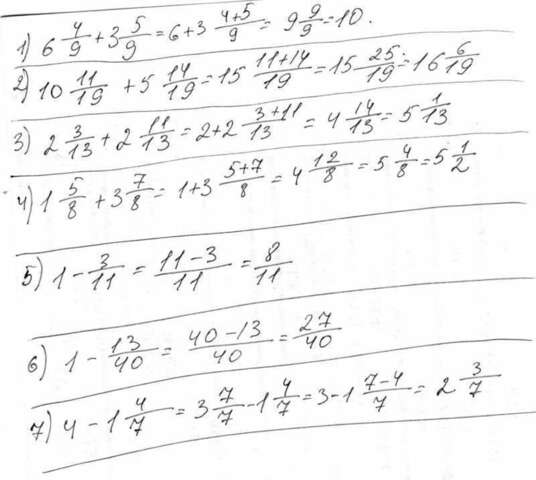 1) 6 4/9 + 3 5/9 = 6+3 (4+5)/9 = 9 9/9 = 10.
2) 10 11/19 + 5 14/19 = 15 (11+14)/19 = 15 25/19 = 16 6/19
3) 2 3/13 + 2 11/13 = 2+2 (3+11)/13 = 4 14/13 = 5 1/13
4) 1 5/8 + 3 7/8 = 1+3 (5+7)/8 = 4 12/8 = 5 4/8 = 5 1/2
5) 1 - 3/11 = (11-3)/11 = 8/11
6) 1 - 13/40 = (40-13)/40 = 27/40
7) 4 - 1 4/7 = 3 7/7 - 1 4/7 = 3-1 (7-4)/7 = 2 3/7